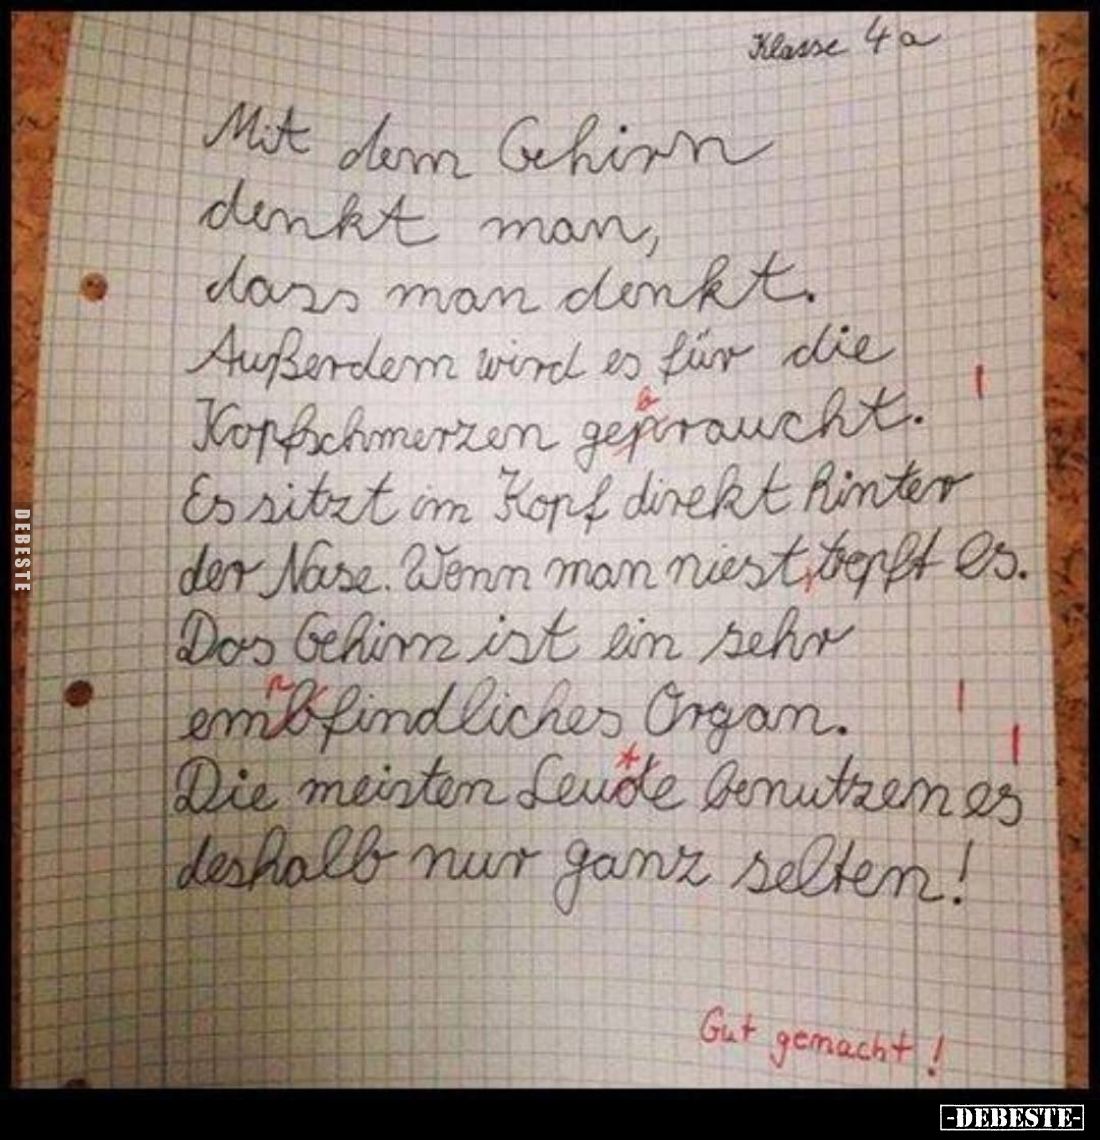 Klasse 4a
Mit dem Gehirn
denkt man,
dass man denkt.
Außerdem wird es für die
b
Kopfschmerzen gepraucht.
Es sitzt im Kopf direkt hinter
der Nase. Wenn man niest, tropft es.
Das Gehirn ist ein sehr
p
embfindliches Organ.
t
Die meisten Leude benutzen es
deshalb nur ganz selten!
Gut gemacht!
DEBESTE
-DEBESTE-